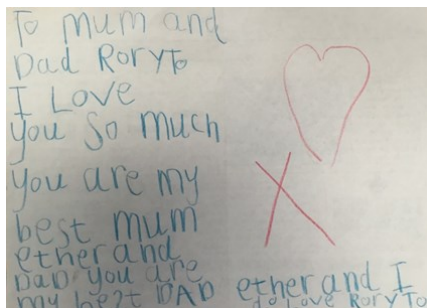 To mum and
Dad RoryTo
I Love
you so much
you are my
best mum
ether and
Dad you are
my best DAD ether and I
do love Rory To